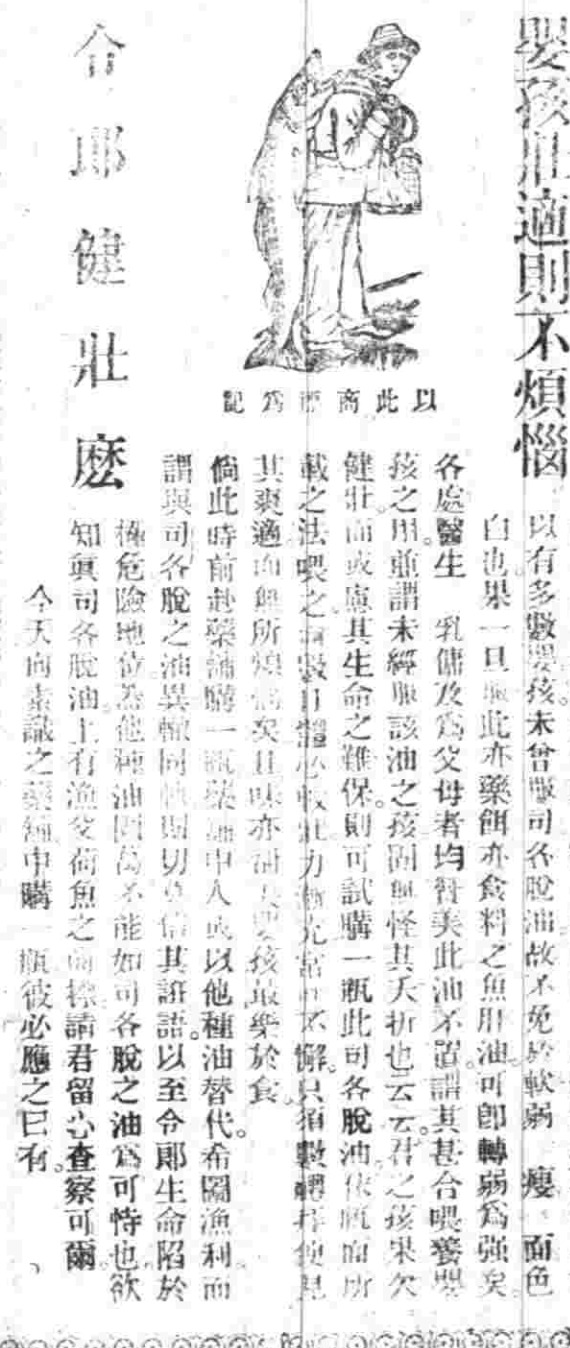 嬰孩壯適則不煩惱
以此商標爲記
令郎健壯麽
以有多數嬰孩。未曾服司各脫油。故不免於軟弱 瘦 面色
白也。果一旦服此亦藥餌亦食料之魚肝油。可卽轉弱爲强矣。
各處醫生 乳傭及爲父母者均贊美此油不置。謂其甚合喂養嬰
孩之用。並謂未經服該油之孩。固無怪其夭折也云云。君之孩果欠
健壯。而或慮其生命之難保。則可試購一瓶此司各脫油。依瓶面所
載之法喂之。數日體必壯力漸充。不懈。只須數禮拜便見
其爽適而無所煩惱矣。且味亦甜。嬰孩最樂於食。
倘此時前赴藥舖購一瓶。藥舖中人或以他種油替代。希圖漁利。而
謂與司各脫之油異轍同軌。則切勿信其誑語。以至令郞生命陷於
極危險地位。爲他種油固萬不能如司各脫之油爲可恃也。欲
知眞司各脫油。上有漁父荷魚之商標。請君留心查察可爾。
今天向素識之藥舖中購一瓶。彼必應之曰有。